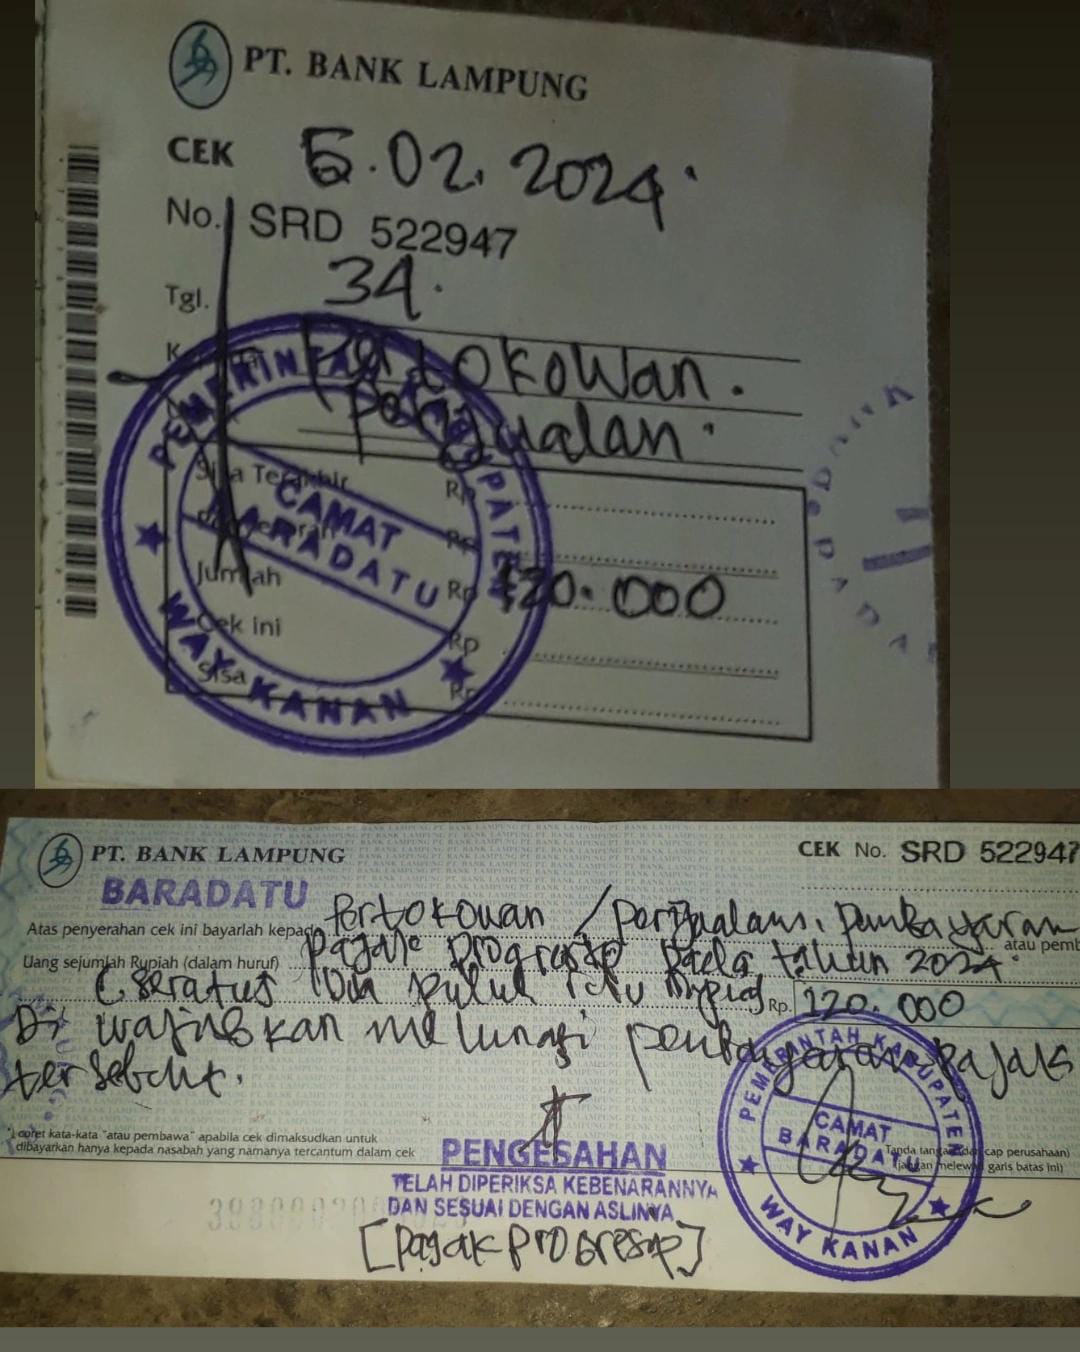 PT. BANK LAMPUNG
CEK 5.02.2024.
No. SRD 522947
Tgl. 34.
Pertokowan.
Penjualan.
Sisa Terakhir Rp
Rp
Jumlah Rp 120.000
Cek ini Rp
Sisa Rp
PEMERINTAH KABUPATEN
CAMAT
BARADATU
WAY KANAN
PT. BANK LAMPUNG
CEK No. SRD 522947
BARADATU
Atas penyerahan cek ini bayarlah kepada Pertokowan / Penjualans. Pembayaran
atau pemb
Uang sejumlah Rupiah (dalam huruf) pajak progresip pada tahun 2024.
(seratus Dua puluh ribu rupiah Rp. 120.000
Di wajibkan melunasi pembayaran pajak
tersebut.
*) coret kata-kata "atau pembawa" apabila cek dimaksudkan untuk
dibayarkan hanya kepada nasabah yang namanya tercantum dalam cek
PENGESAHAN
TELAH DIPERIKSA KEBENARANNYA
DAN SESUAI DENGAN ASLINYA
[pajak progresip]
PEMERINTAH KABUPATEN
CAMAT
BARADATU
WAY KANAN
Tanda tangan dan cap perusahaan)
(jangan melewati garis batas ini)